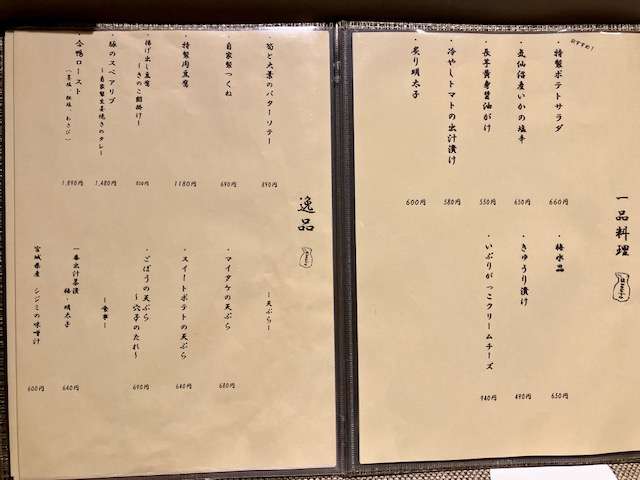 一品料理
おすすめ！
・特製ポテトサラダ 660円
・気仙沼産いかの塩辛 650円
・長芋黄身醤油がけ 550円
・冷やしトマトの出汁漬け 580円
・炙り明太子 600円
・梅水晶 650円
・きゅうり漬け 490円
・いぶりがっこクリームチーズ 940円
逸品
・筍と大葉のバターソテー 890円
・自家製つくね 690円
・特製肉豆腐 1180円
・揚げ出し豆腐
〜きのこ餡掛け〜
・豚のスペアリブ
〜自家製生姜焼きのタレ〜 1,480円
・合鴨ロースト
1,890円
〜天ぷら〜
・マイタケの天ぷら 680円
・スイートポテトの天ぷら 640円
・ごぼうの天ぷら
〜穴子のたれ〜 690円
〜食事〜
一番出汁茶漬
梅・明太子 640円
宮城県産 シジミの味噌汁 600円